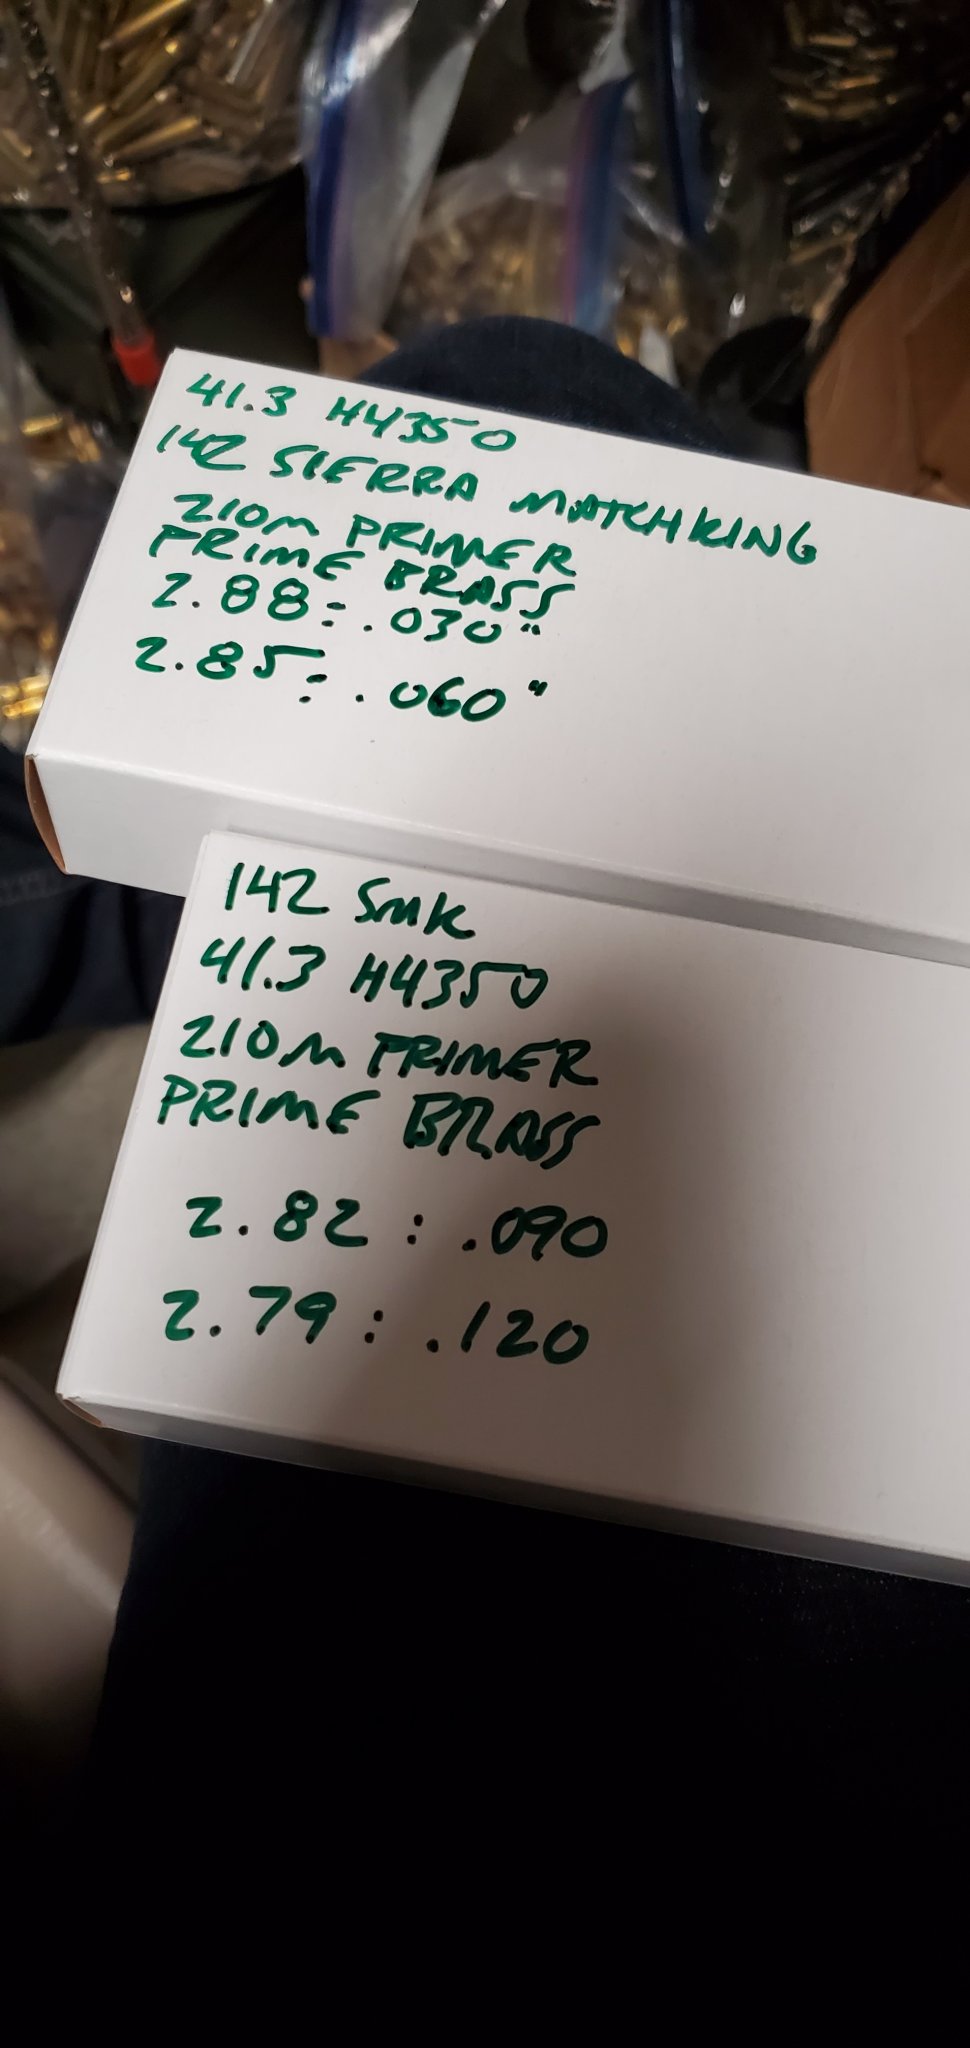 41.3 H4350
142 SIERRA MATCHKING
210m PRIMER
PRIME BRASS
2.88 : .030"
2.85 : .060"
142 Smk
41.3 H4350
210m PRIMER
PRIME BRASS
2.82 : .090
2.79 : .120